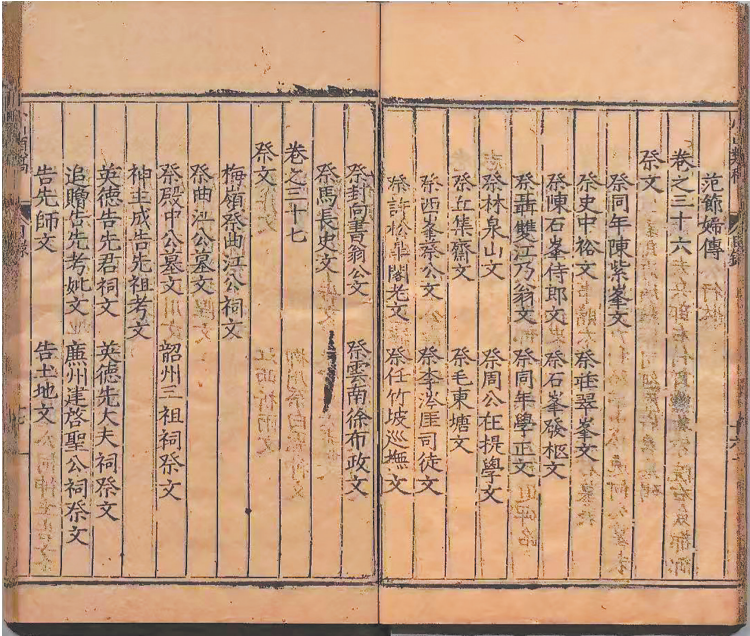 范節婦傳
卷之三十六
祭文
祭同年陳紫峯文
祭史中裕文　祭莊翠峯文
祭陳石峯侍郎文　祭石峯發柩文
祭聶雙江乃翁文　祭同年學正文
祭林泉山文　祭周公在提學文
祭丘集齋文　祭毛東塘文
祭西峯蔡公文　祭李厓司徒文
祭許松皐閣老文　祭任竹坡巡撫文
祭封尚書翁公文　祭雲南徐布政文
祭馬長史文
卷之三十七
祭文
梅嶺祭曲江公祠文
祭曲江公墓文
祭殿中公墓文　韶州三祖祠祭文
神主成告先祖考文
英德告先君祠文　英德先大夫祠祭文
追贈告先考妣文　廉州啓聖公祠祭文
告先師文　告土地文